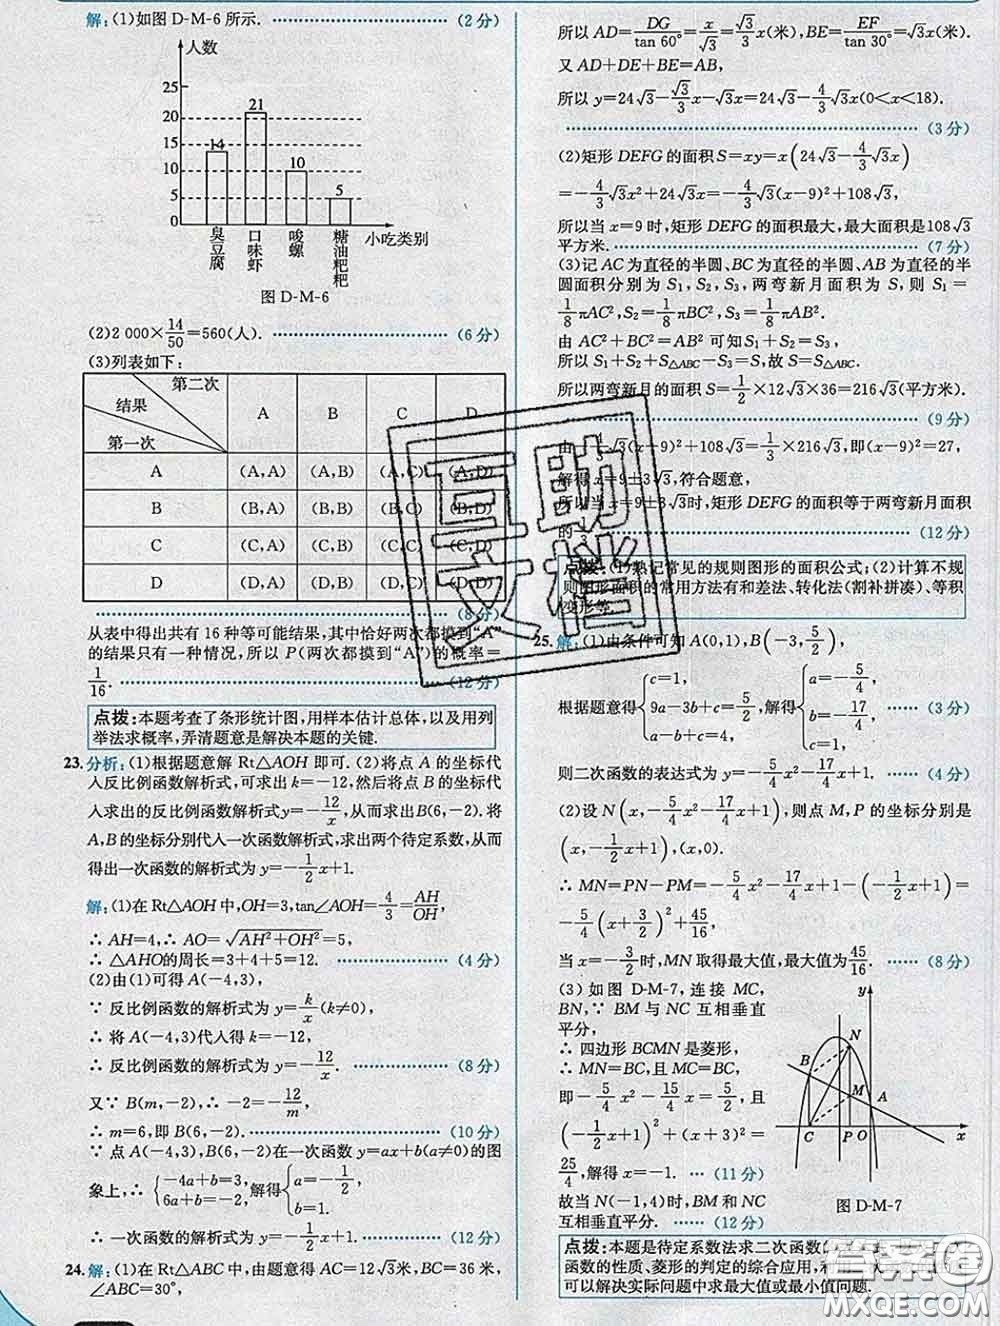 解:(1)如图 D-M-6 所示. (2分)
人数
25
20
15
10
5
0
14
21
10
5
臭豆腐
口味虾
唆螺
糖油粑粑
小吃类别
图 D-M-6
(2)2 000×14/50=560(人). (6分)
(3)列表如下:
第二次
结果
第一次
A B C D
A (A,A) (A,B) (A,C) (A,D)
B (B,A) (B,B) (B,C) (B,D)
C (C,A) (C,B) (C,C) (C,D)
D (D,A) (D,B) (D,C) (D,D)
(8分)
从表中得出共有 16 种等可能结果,其中恰好两次都摸到“A”
的结果只有一种情况,所以 P(两次都摸到“A”)的概率=
1/16. (12分)
点拨:本题考查了条形统计图,用样本估计总体,以及用列
举法求概率,弄清题意是解决本题的关键.
23.分析:(1)根据题意解 Rt△AOH 即可.(2)将点 A 的坐标代
入反比例函数解析式,可求出 k=-12,然后将点 B 的坐标
代入求出的反比例函数解析式y=-12/x,从而求出B(6,-2).将
A,B的坐标分别代入一次函数解析式,求出两个待定系数,从而
得出一次函数的解析式为 y=-1/2x+1.
解:(1)在 Rt△AOH 中,OH=3,tan∠AOH=4/3=AH/OH,
∴ AH=4,∴ AO=√(AH²+OH²)=5,
∴ △AHO的周长=3+4+5=12. (4分)
(2)由(1)可得 A(-4,3),
∵ 反比例函数的解析式为 y=k/x(k≠0),
∴ 将 A(-4,3)代入得 k=-12,
∴ 反比例函数的解析式为 y=-12/x. (8分)
又∵ B(m,-2),∴ -2=-12/m,
∴ m=6,即 B(6,-2). (10分)
∵ 点 A(-4,3),B(6,-2)在一次函数 y=ax+b(a≠0)的图
象上,∴ {-4a+b=3, 6a+b=-2, 解得{a=-1/2, b=1.
∴ 一次函数的解析式为 y=-1/2x+1. (12分)
24.解:(1)在 Rt△ABC 中,由题意得 AC=12√3米,BC=36 米,
∠ABC=30°,
所以 AD=DG/tan 60°=x/√3=√3/3x(米),BE=EF/tan 30°=√3x(米).
又 AD+DE+BE=AB,
所以 y=24√3-√3/3x-√3x=24√3-4/3√3x(0<x<18).
(3分)
(2)矩形 DEFG 的面积 S=xy=x(24√3-4/3√3x)
=-4/3√3x²+24√3x=-4/3√3(x-9)²+108√3,
所以当 x=9 时,矩形 DEFG 的面积最大,最大面积是108√3
平方米. (7分)
(3)记 AC为直径的半圆、BC为直径的半圆、AB为直径的半
圆面积分别为 S₁,S₂,S₃,两弯新月面积为 S,则 S₁=
1/8πAC²,S₂=1/8πBC²,S₃=1/8πAB².
由 AC²+BC²=AB² 可知 S₁+S₂=S₃,
所以 S₁+S₂+S△ABC-S₃=S,故 S=S△ABC.
所以两弯新月的面积 S=1/2×12√3×36=216√3(平方米).
(9分)
由-4/3√3(x-9)²+108√3=1/3×216√3,即(x-9)²=27,
解得 x=9±3√3,符合题意.
所以当 x=9±3√3时,矩形 DEFG 的面积等于两弯新月面积
的1/3. (12分)
点拨:(1)熟记常见的规则图形的面积公式;(2)计算不规
则图形面积的常用方法有和差法、转化法(割补拼凑)、等积
变形等.
25.解:(1)由条件可知 A(0,1),B(-3,5/2),
根据题意得{c=1, 9a-3b+c=5/2, a-b+c=4, 解得{a=-5/4, b=-17/4, c=1. (3分)
则二次函数的表达式为 y=-5/4x²-17/4x+1. (4分)
(2)设 N(x,-5/4x²-17/4x+1),则点 M,P 的坐标分别是
(x,-1/2x+1),(x,0).
∴ MN=PN-PM=-5/4x²-17/4x+1-(-1/2x+1)=
-5/4(x+3/2)²+45/16,
当 x=-3/2时,MN 取得最大值,最大值为45/16. (8分)
(3) 如图 D-M-7,连接 MC,
BN,∵ BM 与 NC 互相垂直
平分,
∴ 四边形 BCMN 是菱形,
∴ MN=BC,且 MC=BC,
即-5/4x²-15/4x=5/2,且
(-1/2x+1)²+(x+3)²=
25/4,解得 x=-1. (11分)
故当 N(-1,4)时,BM 和 NC
互相垂直平分. (12分)
y
N
B
M
A
C
P
O
x
图 D-M-7
点拨:本题是待定系数法求二次函数
函数的性质、菱形的判定的综合应用,利用
可以解决实际问题中求最大值或最小值问题.
互助
文档
答案圈
MXQE.COM